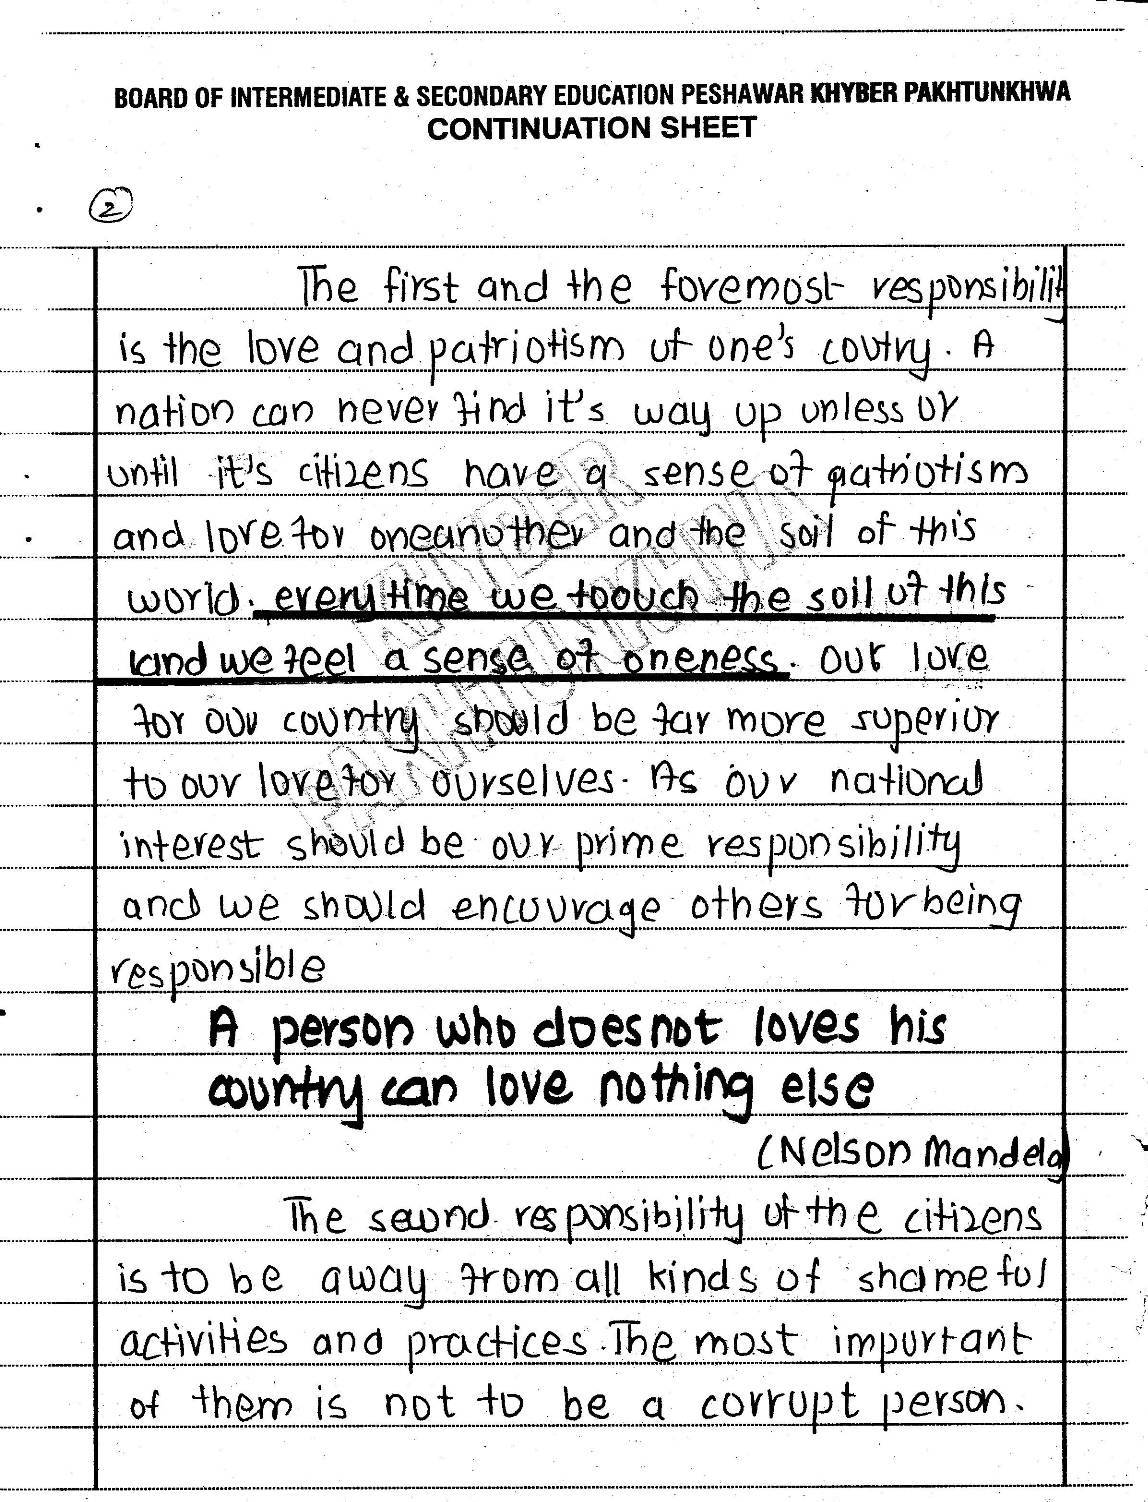 BOARD OF INTERMEDIATE & SECONDARY EDUCATION PESHAWAR KHYBER PAKHTUNKHWA
CONTINUATION SHEET
2
The first and the foremost responsibility
is the love and patriotism of one's coutry. A
nation can never find it's way up unless or
until it's citizens have a sense of patriotism
and love for oneanother and the soil of this
world. every time we toouch the soil of this
land we feel a sense of oneness. Our love
for our country should be far more superior
to our love for ourselves. As our national
interest should be our prime responsibility
and we should encourage others for being
responsible
A person who does not loves his
country can love nothing else
(Nelson Mandela)
The second responsibility of the citizens
is to be away from all kinds of shameful
activities and practices. The most important
of them is not to be a corrupt person.
KHYBER
PAKHTUNKHWA